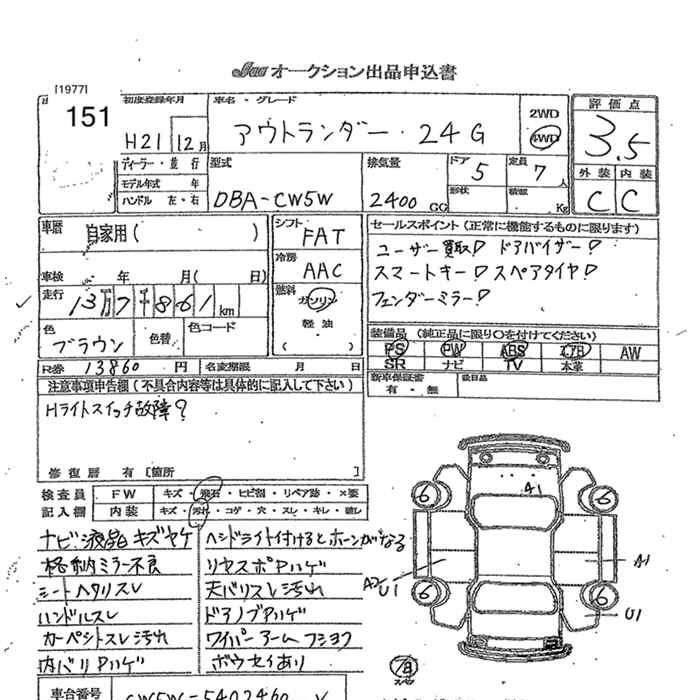 Jaa オークション出品申込書
[1977]
151
初度登録年月
車名・グレード
評価点
H21 12月
アウトランダー・24G
2WD
4WD
3.5
ディーラー・並行
モデル年式 年
ハンドル 左・右
型式
DBA-CW5W
排気量
2400 CC
ドア
5
定員
7人
形状
積載
Kg
外装 内装
C C
車歴
自家用( )
車検 年 月( 日)
走行
13万7千861km
色
ブラウン
色替
色コード
シフト
FAT
冷房
AAC
燃料
ガソリン
軽油
( )
セールスポイント (正常に機能するものに限ります)
ユーザー買取! ドアバイザー!
スマートキー! スペアタイヤ!
フェンダーミラー!
装備品 (純正品に限り○を付けてください)
PS PW ABS エアB AW
SR ナビ TV 本革
R券 13860 円
名変期限 月 日
新車保証書
有・無
後日品
注意事項申告欄 (不具合内容等は具体的に記入して下さい)
Hライトスイッチ故障?
修復歴 有 [箇所 ]
検査員 FW キズ・飛石・ヒビ割・リペア跡・X要
記入欄 内装 キズ・汚れ・コゲ・穴・スレ・キレ・臭し
ナビ液晶キズヤケ
格納ミラー不良
シートヘタリスレ
ハンドルスレ
カーペットスレ汚れ
内バリPハゲ
ヘッドライト付けるとホーンがなる
リヤスポPハゲ
天バリスレ汚れ
ドアノブハゲ
ワイパーアームフショク
ボウセイあり
A1
6 6
A2
U1
A1
6 6
U1
車台番号
CW5W-5402460